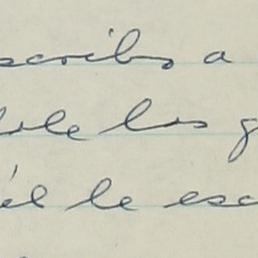 scribo a
dole los g
él le esc